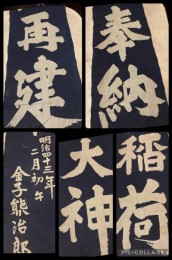 奉納
稲荷
大神
再建
明治四十三年
二月初午
金子熊治郎